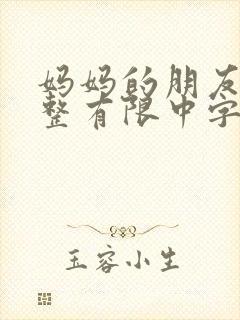 妈妈的朋友
整有限中字
玉容小生